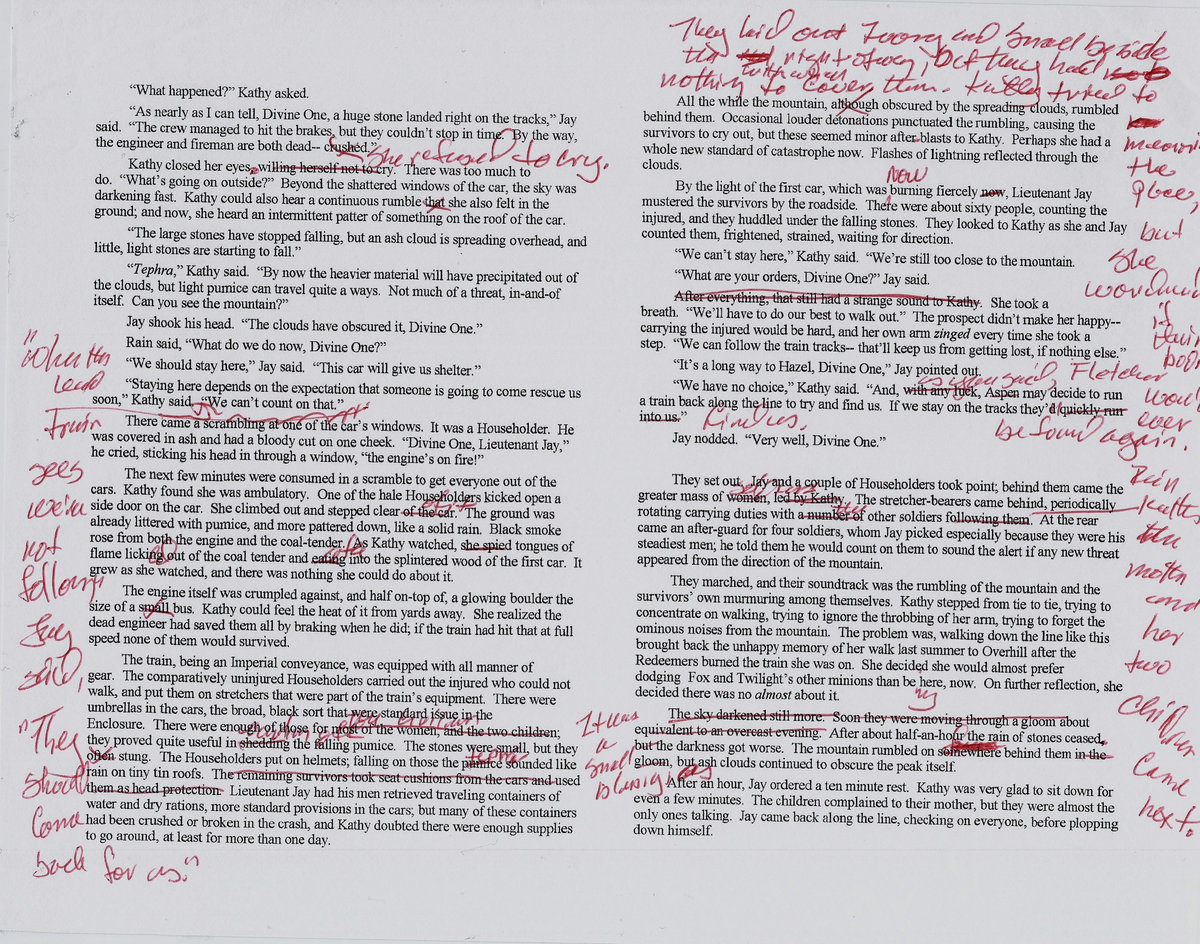 "What happened?" Kathy asked.
"As nearly as I can tell, Divine One, a huge stone landed right on the tracks," Jay
said. "The crew managed to hit the brakes, but they couldn't stop in time. By the way,
the engineer and fireman are both dead-- crushed."
She refused to cry.
Kathy closed her eyes, willing herself not to cry. There was too much to
do. "What's going on outside?" Beyond the shattered windows of the car, the sky was
darkening fast. Kathy could also hear a continuous rumble that she also felt in the
ground; and now, she heard an intermittent patter of something on the roof of the car.
"The large stones have stopped falling, but an ash cloud is spreading overhead, and
little, light stones are starting to fall."
"Tephra," Kathy said. "By now the heavier material will have precipitated out of
the clouds, but light pumice can travel quite a ways. Not much of a threat, in-and-of
itself. Can you see the mountain?"
Jay shook his head. "The clouds have obscured it, Divine One."
Rain said, "What do we do now, Divine One?"
"We should stay here," Jay said. "This car will give us shelter."
"Staying here depends on the expectation that someone is going to come rescue us
soon," Kathy said. "We can't count on that."
There came a scrambling at one of the car's windows. It was a Householder. He
was covered in ash and had a bloody cut on one cheek. "Divine One, Lieutenant Jay,"
he cried, sticking his head in through a window, "the engine's on fire!"
The next few minutes were consumed in a scramble to get everyone out of the
cars. Kathy found she was ambulatory. One of the hale Householders kicked open a
side door on the car. She climbed out and stepped clear of the car. The ground was
of it
already littered with pumice, and more pattered down, like a solid rain. Black smoke
rose from both the engine and the coal-tender. As Kathy watched, she spied tongues of
flame licking out of the coal tender and eating into the splintered wood of the first car. It
grew as she watched, and there was nothing she could do about it.
The engine itself was crumpled against, and half on-top of, a glowing boulder the
size of a small bus. Kathy could feel the heat of it from yards away. She realized the
dead engineer had saved them all by braking when he did; if the train had hit that at full
speed none of them would survived.
The train, being an Imperial conveyance, was equipped with all manner of
gear. The comparatively uninjured Householders carried out the injured who could not
walk, and put them on stretchers that were part of the train's equipment. There were
umbrellas in the cars, the broad, black sort that were standard issue in the
Enclosure. There were enough of those for most of the women, and the two children;
they proved quite useful in shedding the falling pumice. The stones were small, but they
often stung. The Householders put on helmets; falling on those the pumice sounded like
tephra
rain on tiny tin roofs. The remaining survivors took seat cushions from the cars and used
them as head protection. Lieutenant Jay had his men retrieved traveling containers of
water and dry rations, more standard provisions in the cars; but many of these containers
had been crushed or broken in the crash, and Kathy doubted there were enough supplies
to go around, at least for more than one day.
"When the
lead
train
sees
we're
not
following
Jay
said,
"They
should
come
back for us."
They laid out Ivory and Small beside
the right of way, but they had
nothing to cover them. Kathy tried to
the
place,
but
she
if
their
would
ever
be found again.
All the while the mountain, although obscured by the spreading clouds, rumbled
behind them. Occasional louder detonations punctuated the rumbling, causing the
survivors to cry out, but these seemed minor after blasts to Kathy. Perhaps she had a
whole new standard of catastrophe now. Flashes of lightning reflected through the
clouds.
now
By the light of the first car, which was burning fiercely now, Lieutenant Jay
mustered the survivors by the roadside. There were about sixty people, counting the
injured, and they huddled under the falling stones. They looked to Kathy as she and Jay
counted them, frightened, strained, waiting for direction.
"We can't stay here," Kathy said. "We're still too close to the mountain.
"What are your orders, Divine One?" Jay said.
After everything, that still had a strange sound to Kathy. She took a
breath. "We'll have to do our best to walk out." The prospect didn't make her happy--
carrying the injured would be hard, and her own arm zinged every time she took a
step. "We can follow the train tracks-- that'll keep us from getting lost, if nothing else."
"It's a long way to Hazel, Divine One," Jay pointed out.
as you said, Fletcher
"We have no choice," Kathy said. "And, with any luck, Aspen may decide to run
a train back along the line to try and find us. If we stay on the tracks they'd quickly run
into us."
find us.
Jay nodded. "Very well, Divine One."
They set out, Jay and a couple of Householders took point; behind them came the
greater mass of women, led by Kathy. The stretcher-bearers came behind, periodically
rotating carrying duties with a number of other soldiers following them. At the rear
came an after-guard for four soldiers, whom Jay picked especially because they were his
steadiest men; he told them he would count on them to sound the alert if any new threat
appeared from the direction of the mountain.
They marched, and their soundtrack was the rumbling of the mountain and the
survivors' own murmuring among themselves. Kathy stepped from tie to tie, trying to
concentrate on walking, trying to ignore the throbbing of her arm, trying to forget the
ominous noises from the mountain. The problem was, walking down the line like this
brought back the unhappy memory of her walk last summer to Overhill after the
Redeemers burned the train she was on. She decided she would almost prefer
dodging Fox and Twilight's other minions than be here, now. On further reflection, she
decided there was no almost about it.
The sky darkened still more. Soon they were moving through a gloom about
equivalent to an overcast evening. After about half-an-hour the rain of stones ceased,
but the darkness got worse. The mountain rumbled on somewhere behind them in the
gloom, but ash clouds continued to obscure the peak itself.
After an hour, Jay ordered a ten minute rest. Kathy was very glad to sit down for
even a few minutes. The children complained to their mother, but they were almost the
only ones talking. Jay came back along the line, checking on everyone, before plopping
down himself.
It was
a
small
blessing
Rain
the
mother
and
her
two
children
came
next.